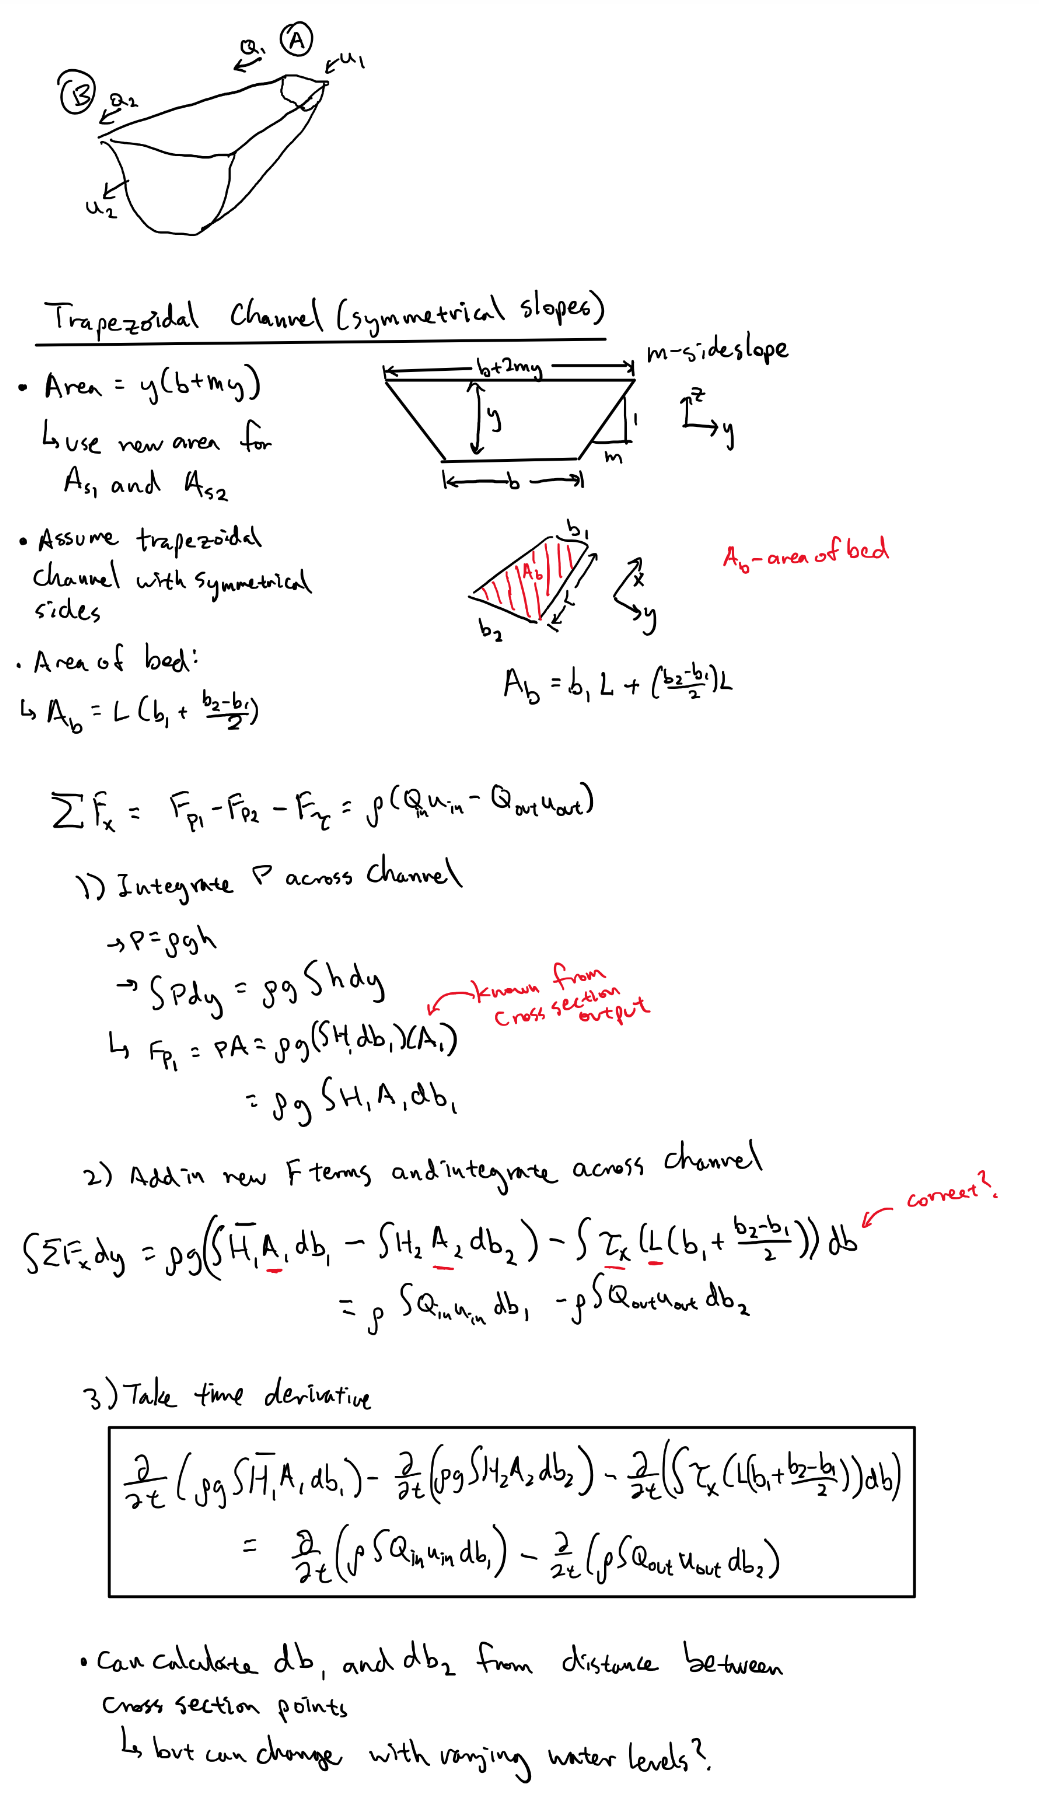 Q₁ Ⓐ u₁
Ⓑ Q₂
u₂
Trapezoidal Channel (symmetrical slopes)
• Area = y(b+my)
↳ use new area for
As₁ and As₂
b+2my
m-sideslope
y
1
m
b
z
y
• Assume trapezoidal
channel with symmetrical
sides
b₁
A_b
L
b₂
x
y
A_b - area of bed
• Area of bed:
↳ A_b = L(b₁ + (b₂-b₁)/2)
A_b = b₁L + ((b₂-b₁)/2)L
ΣF_x = F_p₁ - F_p₂ - F_τ = ρ(Q_in u_in - Q_out u_out)
1) Integrate P across channel
→ P = ρgh
→ ∫Pdy = ρg∫hdy
known from
cross section
output
↳ F_p₁ = PA = ρg(∫H₁db₁)(A₁)
= ρg∫H₁A₁db₁
2) Add in new F terms and integrate across channel
correct?
∫ΣF_x dy = ρg(∫H̅₁A₁db₁ - ∫H₂A₂db₂) - ∫τ_x(L(b₁ + (b₂-b₁)/2))db
= ρ∫Q_in u_in db₁ - ρ∫Q_out u_out db₂
3) Take time derivative
∂/∂t(ρg∫H̅₁A₁db₁) - ∂/∂t(ρg∫H₂A₂db₂) - ∂/∂t(∫τ_x(L(b₁+(b₂-b₁)/2))db)
= ∂/∂t(ρ∫Q_in u_in db₁) - ∂/∂t(ρ∫Q_out u_out db₂)
• Can calculate db₁ and db₂ from distance between
cross section points
↳ but can change with varying water levels?